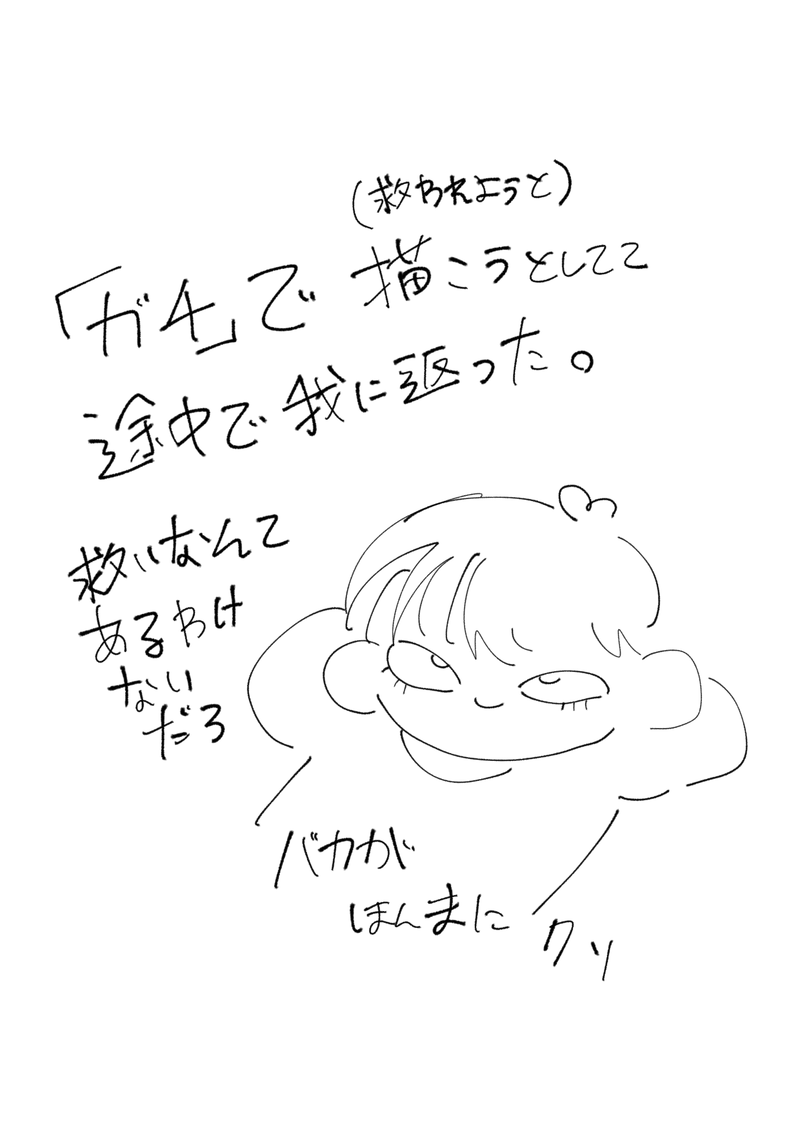 (救われようと)
「ガチ」で 描こうとしてて
途中で我に返った。
救いなんて
あるわけ
ない
だろ
バカが
ほんまに クソ